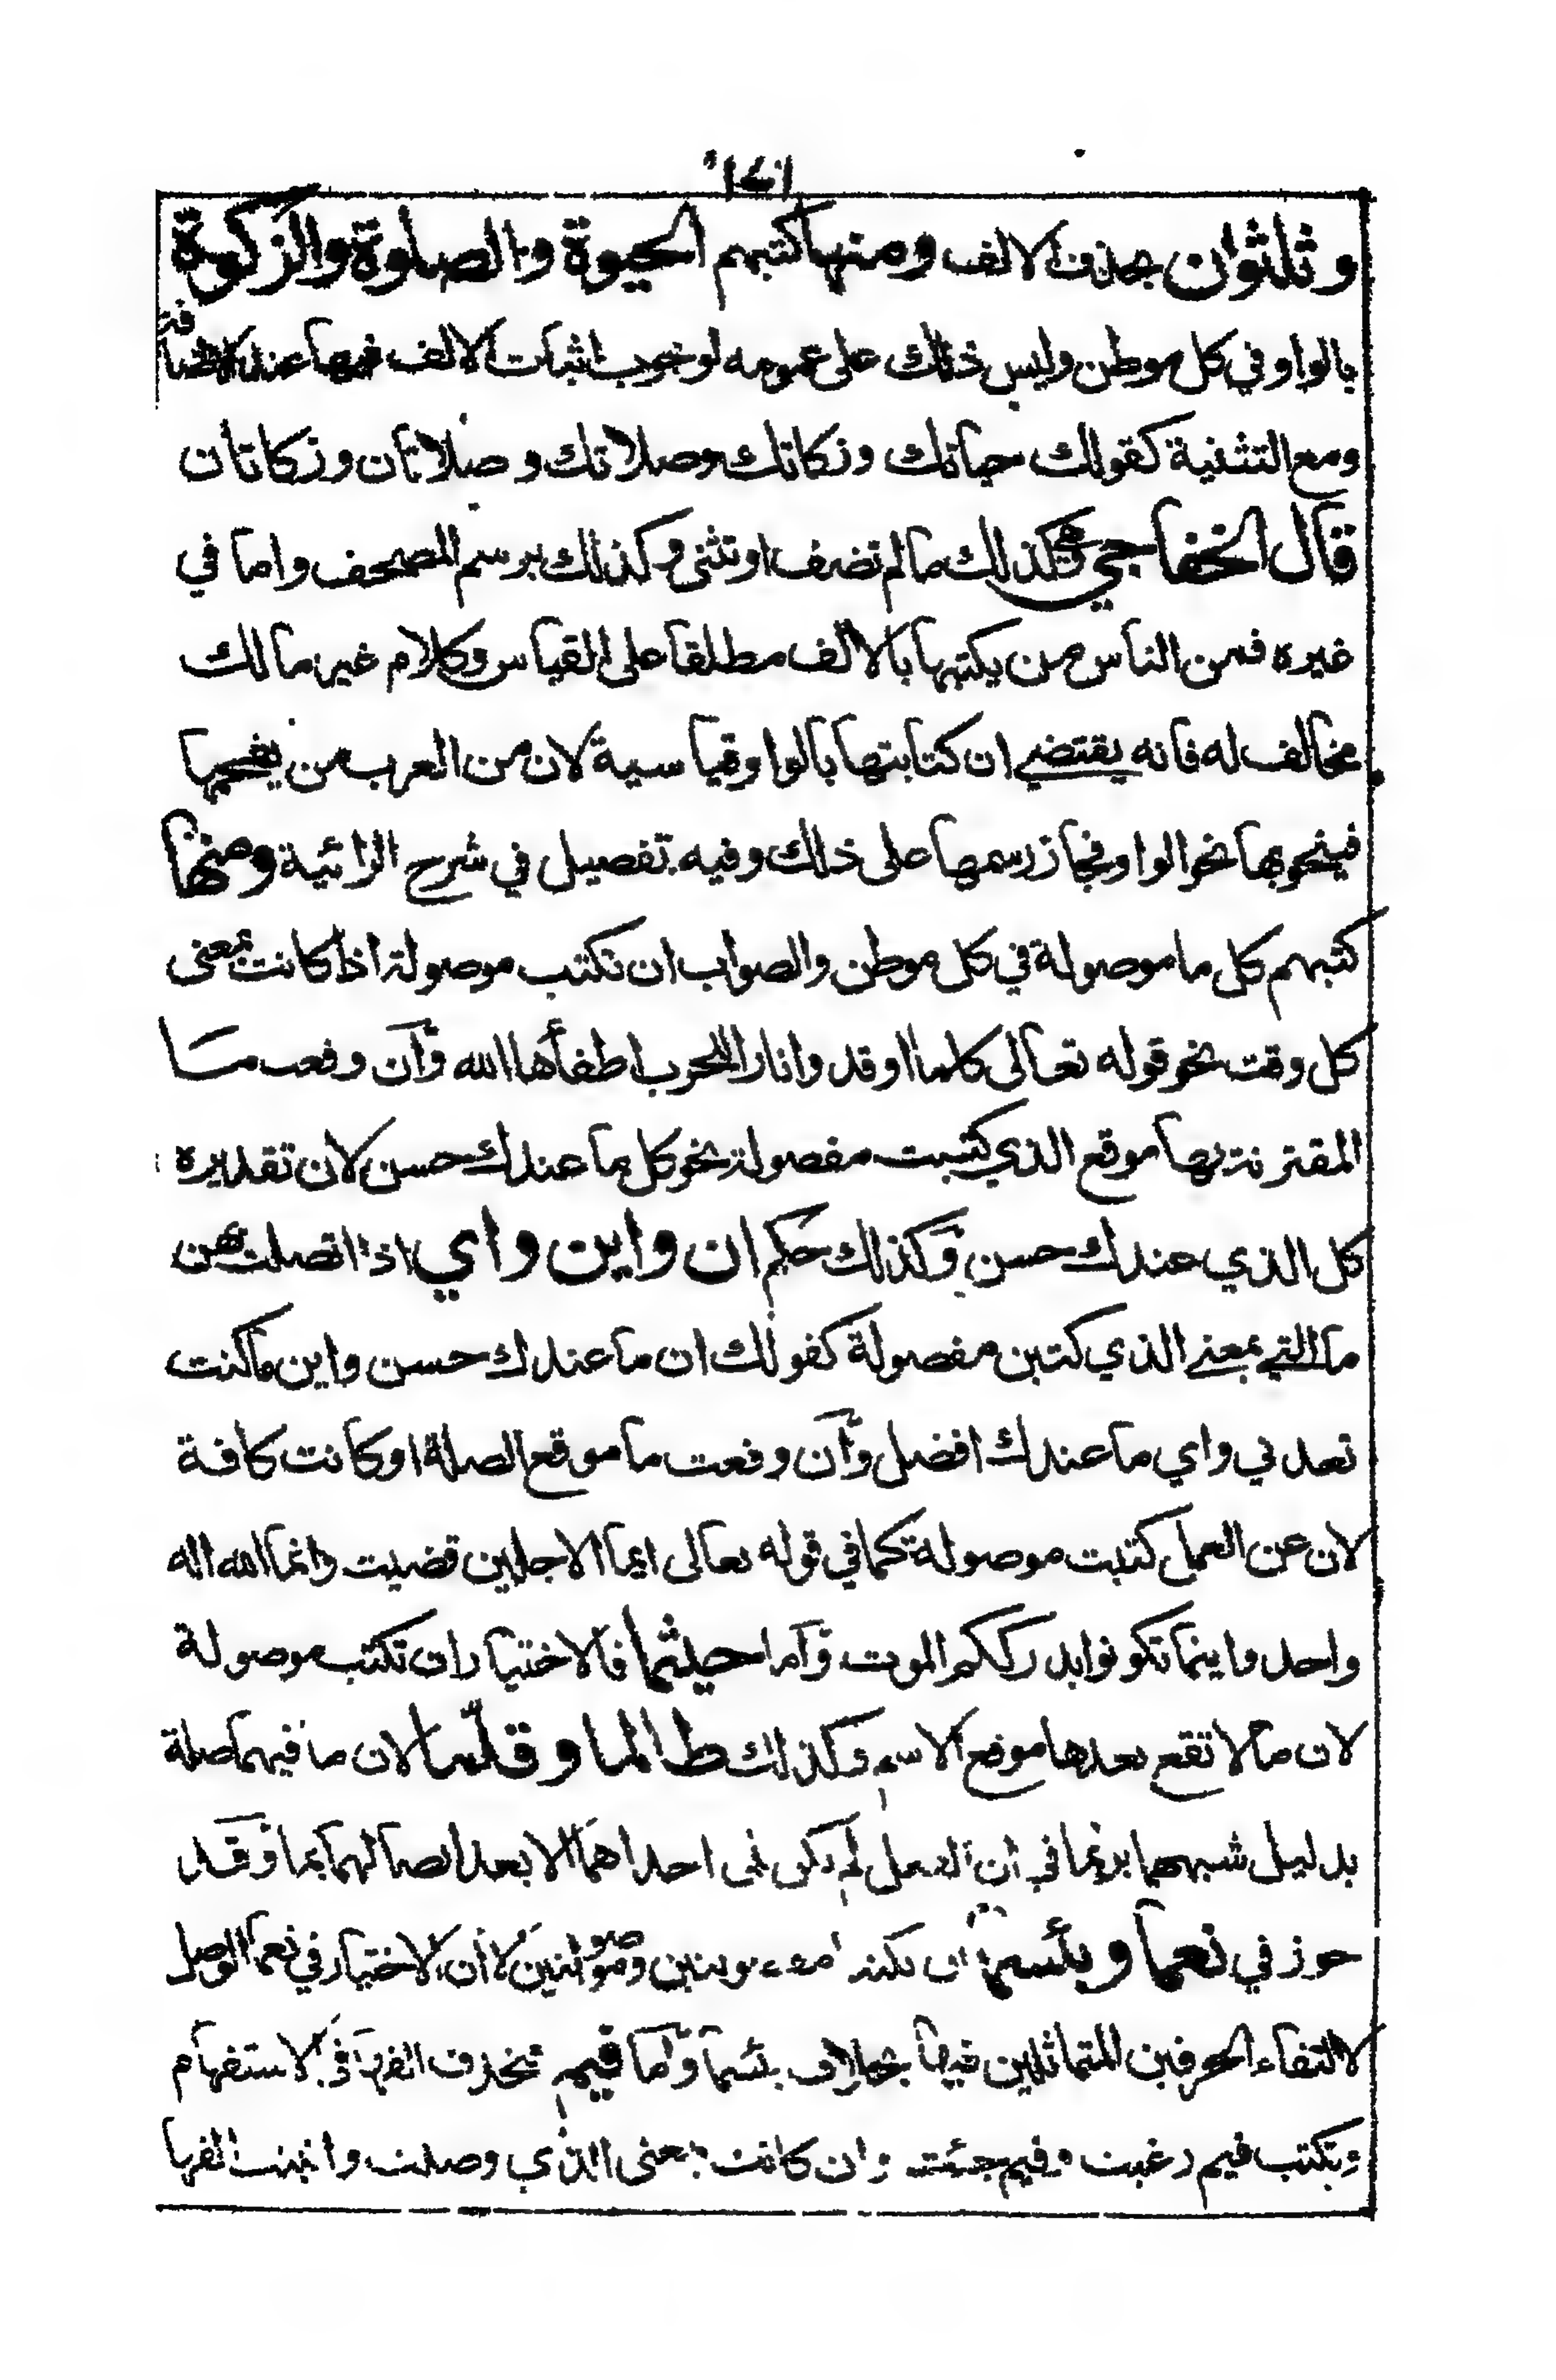 ١٤١
وثلثون بحذف الالف ومنها كتبهم الحيوة والصلوة والزكوة
بالواو في كل موطن وليس ذلك على عمومه لوجوب اثبات الالف فيها عند الاضافة
ومع التثنية كقولك حياتك وزكاتك وصلاتك وصلاتان وزكاتان
قال الخفاجي هي كذلك ما لم تضف او تثنى وكذلك برسم المصحف واما في
غيره فمن الناس من يكتبها بالالف مطلقا على القياس وكلام غير مالك
مخالف له فانه يقتضي ان كتابتها بالواو قياسية لان من العرب من يفخمها
فينحو بها نحو الواو فجاز رسمها على ذلك وفيه تفصيل في شرح الرائية ومنها
كتبهم كل ما موصولة في كل موطن والصواب ان تكتب موصولة اذا كانت بمعنى
كل وقت نحو قوله تعالى كلما اوقدوا نارا للحرب اطفأها الله وان وقعت ما
المقترنة بها موقع الذي كتبت مفصولة نحو كل ما عندك حسن لان تقديره
كل الذي عندك حسن وكذلك حكم ان واين واي اذا اتصلت بهن
ما التي بمعنى الذي كتبن مفصولة كقولك ان ما عندك حسن واين ما كنت
تعدني واي ما عندك افضل وان وقعت ما موقع الصلة او كانت كافة
لان عن العمل كتبت موصولة كما في قوله تعالى ايما الاجلين قضيت وانما الله اله
واحد واينما تكونوا يدرككم الموت واما حيثما فالاختيار ان تكتب موصولة
لان ما لا تقع بعدها موضع الاسم وكذلك طالما وقلما لان ما فيهما صلة
بدليل شبههما بربما في ان الفعل لم يكن يلي احداهما الا بعد اتصالهما بما وقد
جوز في نعما وبئسما ان تكتبا مفصولتين وموصولتين لان الاختيار في نعما الوصل
لالتقاء الحرفين المتماثلين فيها بخلاف بئسما واما فيم فتحذف الفها في الاستفهام
وتكتب فيم رغبت وفيم جئت وان كانت بمعنى الذي وصلت واثبتت الفها